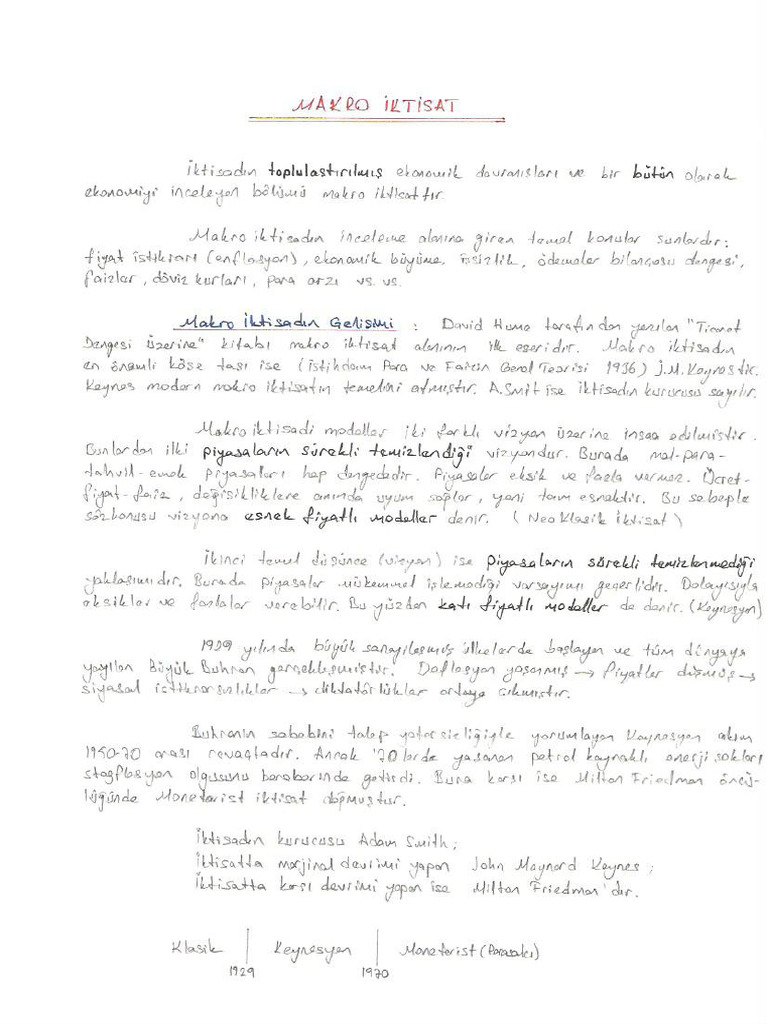 MAKRO İKTİSAT
İktisadın toplulaştırılmış ekonomik davranışları ve bir bütün olarak
ekonomiyi inceleyen bölümü makro iktisattır.
Makro iktisadın inceleme alanına giren temel konular şunlardır:
fiyat istikrarı (enflasyon), ekonomik büyüme, işsizlik, ödemeler bilançosu dengesi,
faizler, döviz kurları, para arzı vs. vs.
Makro İktisadın Gelişimi : David Hume tarafından yazılan "Ticaret
Dengesi Üzerine" kitabı makro iktisat alanının ilk eseridir. Makro iktisadın
en önemli köşe taşı ise (İstihdam Para ve Faizin Genel Teorisi 1936) J.M. Keynestir.
Keynes modern makro iktisatın temelini atmıştır. A.Smit ise iktisadın kurucusu sayılır.
Makro iktisadi modeller iki farklı vizyon üzerine inşaa edilmiştir.
Bunlardan ilki piyasaların sürekli temizlendiği vizyondur. Burada mal-para-
tahvil-emek piyasaları hep dengededir. Piyasalar eksik ve fazla vermez. Ücret-
fiyat-faiz, değişikliklere anında uyum sağlar, yani tam esnektir. Bu sebeple
sözkonusu vizyona esnek fiyatlı modeller denir. (Neo Klasik İktisat)
İkinci temel düşünce (vizyon) ise piyasaların sürekli temizlenmediği
yaklaşımıdır. Burada piyasalar mükemmel işlemediği varsayımı geçerlidir. Dolayısıyla
eksikler ve fazlalar verebilir. Bu yüzden katı fiyatlı modeller de denir. (Keynesyen)
1929 yılında büyük sanayileşmiş ülkelerde başlayan ve tüm dünyaya
yayılan Büyük Buhran gerçekleşmiştir. Deflasyon yaşanmış → fiyatlar düşmüş →
siyasal istikrarsızlıklar → diktatörlükler ortaya çıkmıştır.
Buhranın sebebini talep yetersizliğiyle yorumlayan Keynesyen akım
1950-70 arası revaçtadır. Ancak '70lerde yaşanan petrol kaynaklı enerji şokları
stagflasyon olgusunu beraberinde getirdi. Buna karşı ise Milton Friedman öncü-
lüğünde Monetarist iktisat doğmuştur.
İktisadın kurucusu Adam Smith;
İktisatta marjinal devrimi yapan John Maynard Keynes;
İktisatta karşı devrimi yapan ise Milton Friedman'dır.
Klasik | Keynesyen | Monetarist (Parasalcı)
1929 1970